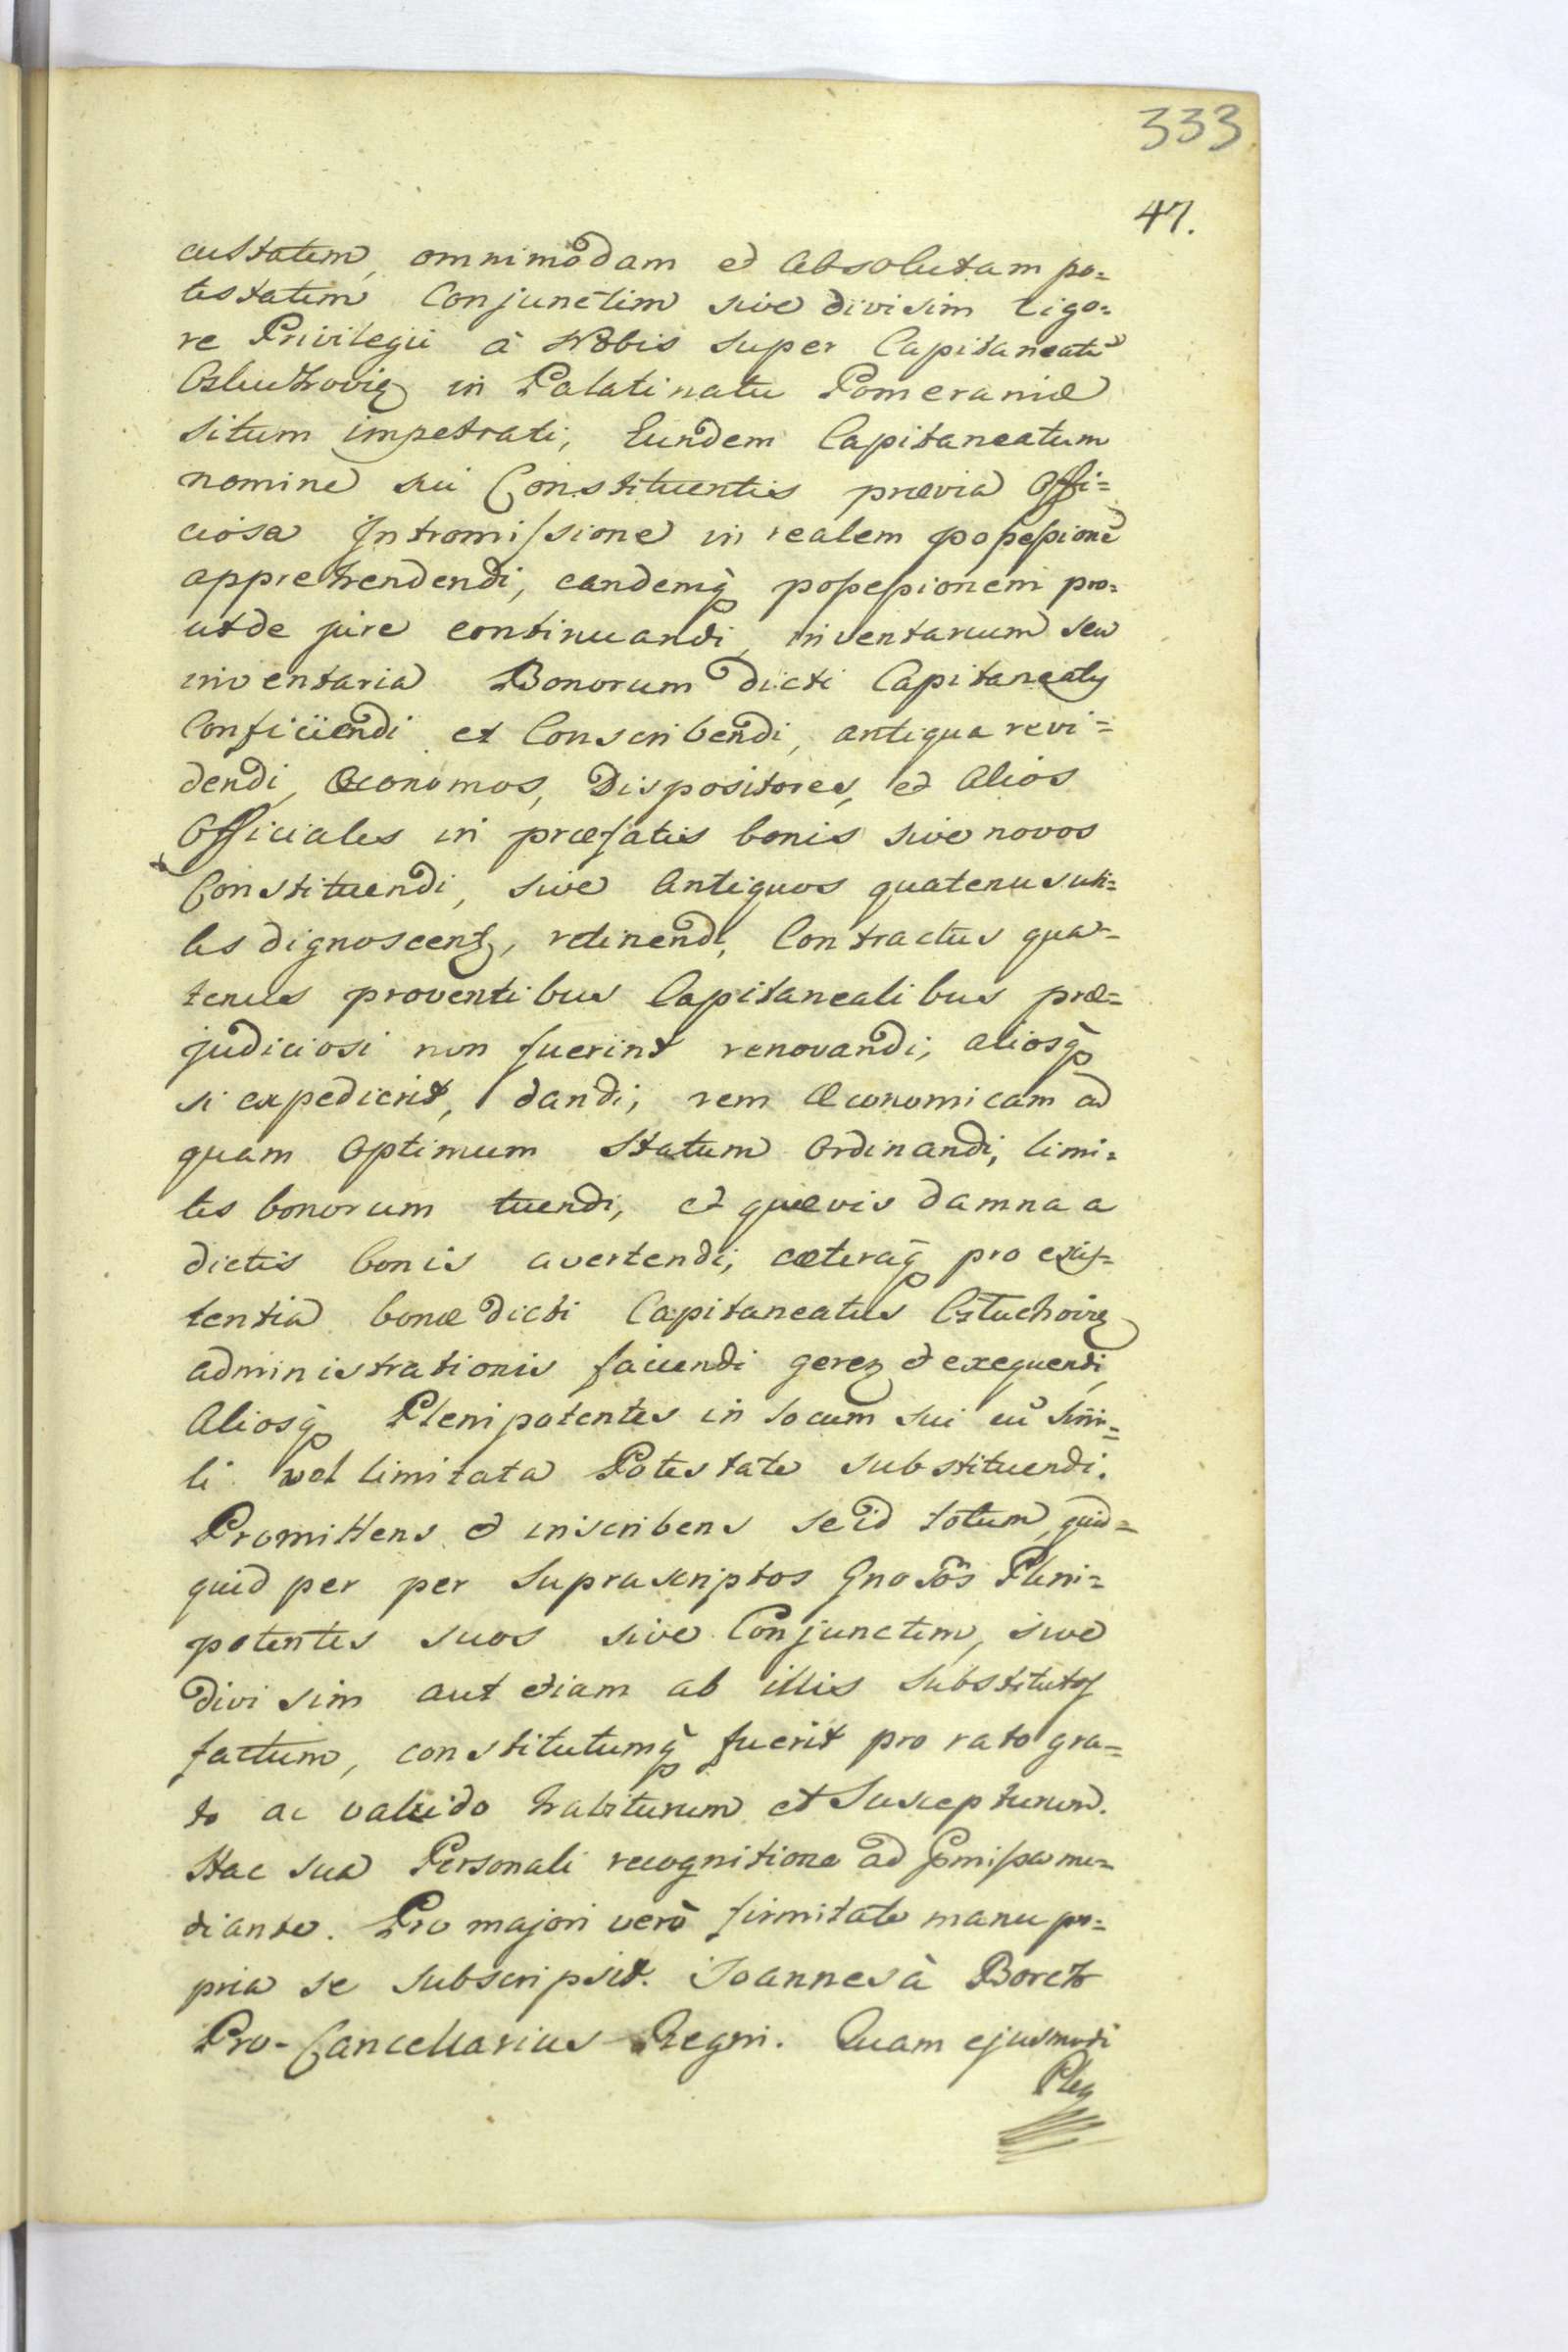 333
47.
cultatem, omnimodam et absolutam po=
testatem Conjunctim sive divisim vigo=
re Privilegii à Nobis super Capitaneatū
in Palatinatu Pomeraniæ
situm impetrati, Eundem Capitaneatum
nomine sui Constituentis prævia Offi=
ciosa Intromissione in realem possessionē
apprehendendi, eandemq̀ possessionem pro=
utde jure continuandi, inventarium seu
inventaria Bonorum dicti Capitaneatus
Conficiendi et Conscribendi, antiqua revi=
dendi, Œconomos, Dispositores, et Alios
Officiales in præfatis bonis sive novos
Constituendi, sive Antiquos quatenus uti=
les dignoscent, retinendi, Contractus qua=
tenus proventibus Capitanealibus præ=
judiciosi non fuerint renovandi, aliosq̀
si expedierit, dandi, rem Œconomicam ad
quam Optimum Statum Ordinandi, limi=
tes bonorum tuendi, et quævis damna a
dictis bonis avertendi, cæteraq̀ pro exis=
tentia bonæ dicti Capitaneatus
administrationis faciendi gerez et exequendi,
Aliosq̀ Plenipotentes in locum sui cū simi=
li vel limitata Potestate substituendi.
Promittens et inscribens se id totum, quid=
quid per per Suprascriptos Gnosos Pleni=
potentes suos sive Conjunctim, sive
divisim aut etiam ab illis Substitutos
factum, constitutumq̀ fuerit pro rato gra=
to ac valido habiturum et Suscepturum.
Hac sua Personali recognitione ad pmissa me=
diante. Pro majori verò firmitate manu pro=
pria se subscripsit. Joannes à Borch
Pro-Cancellarius Regni. Quam ejusmodi